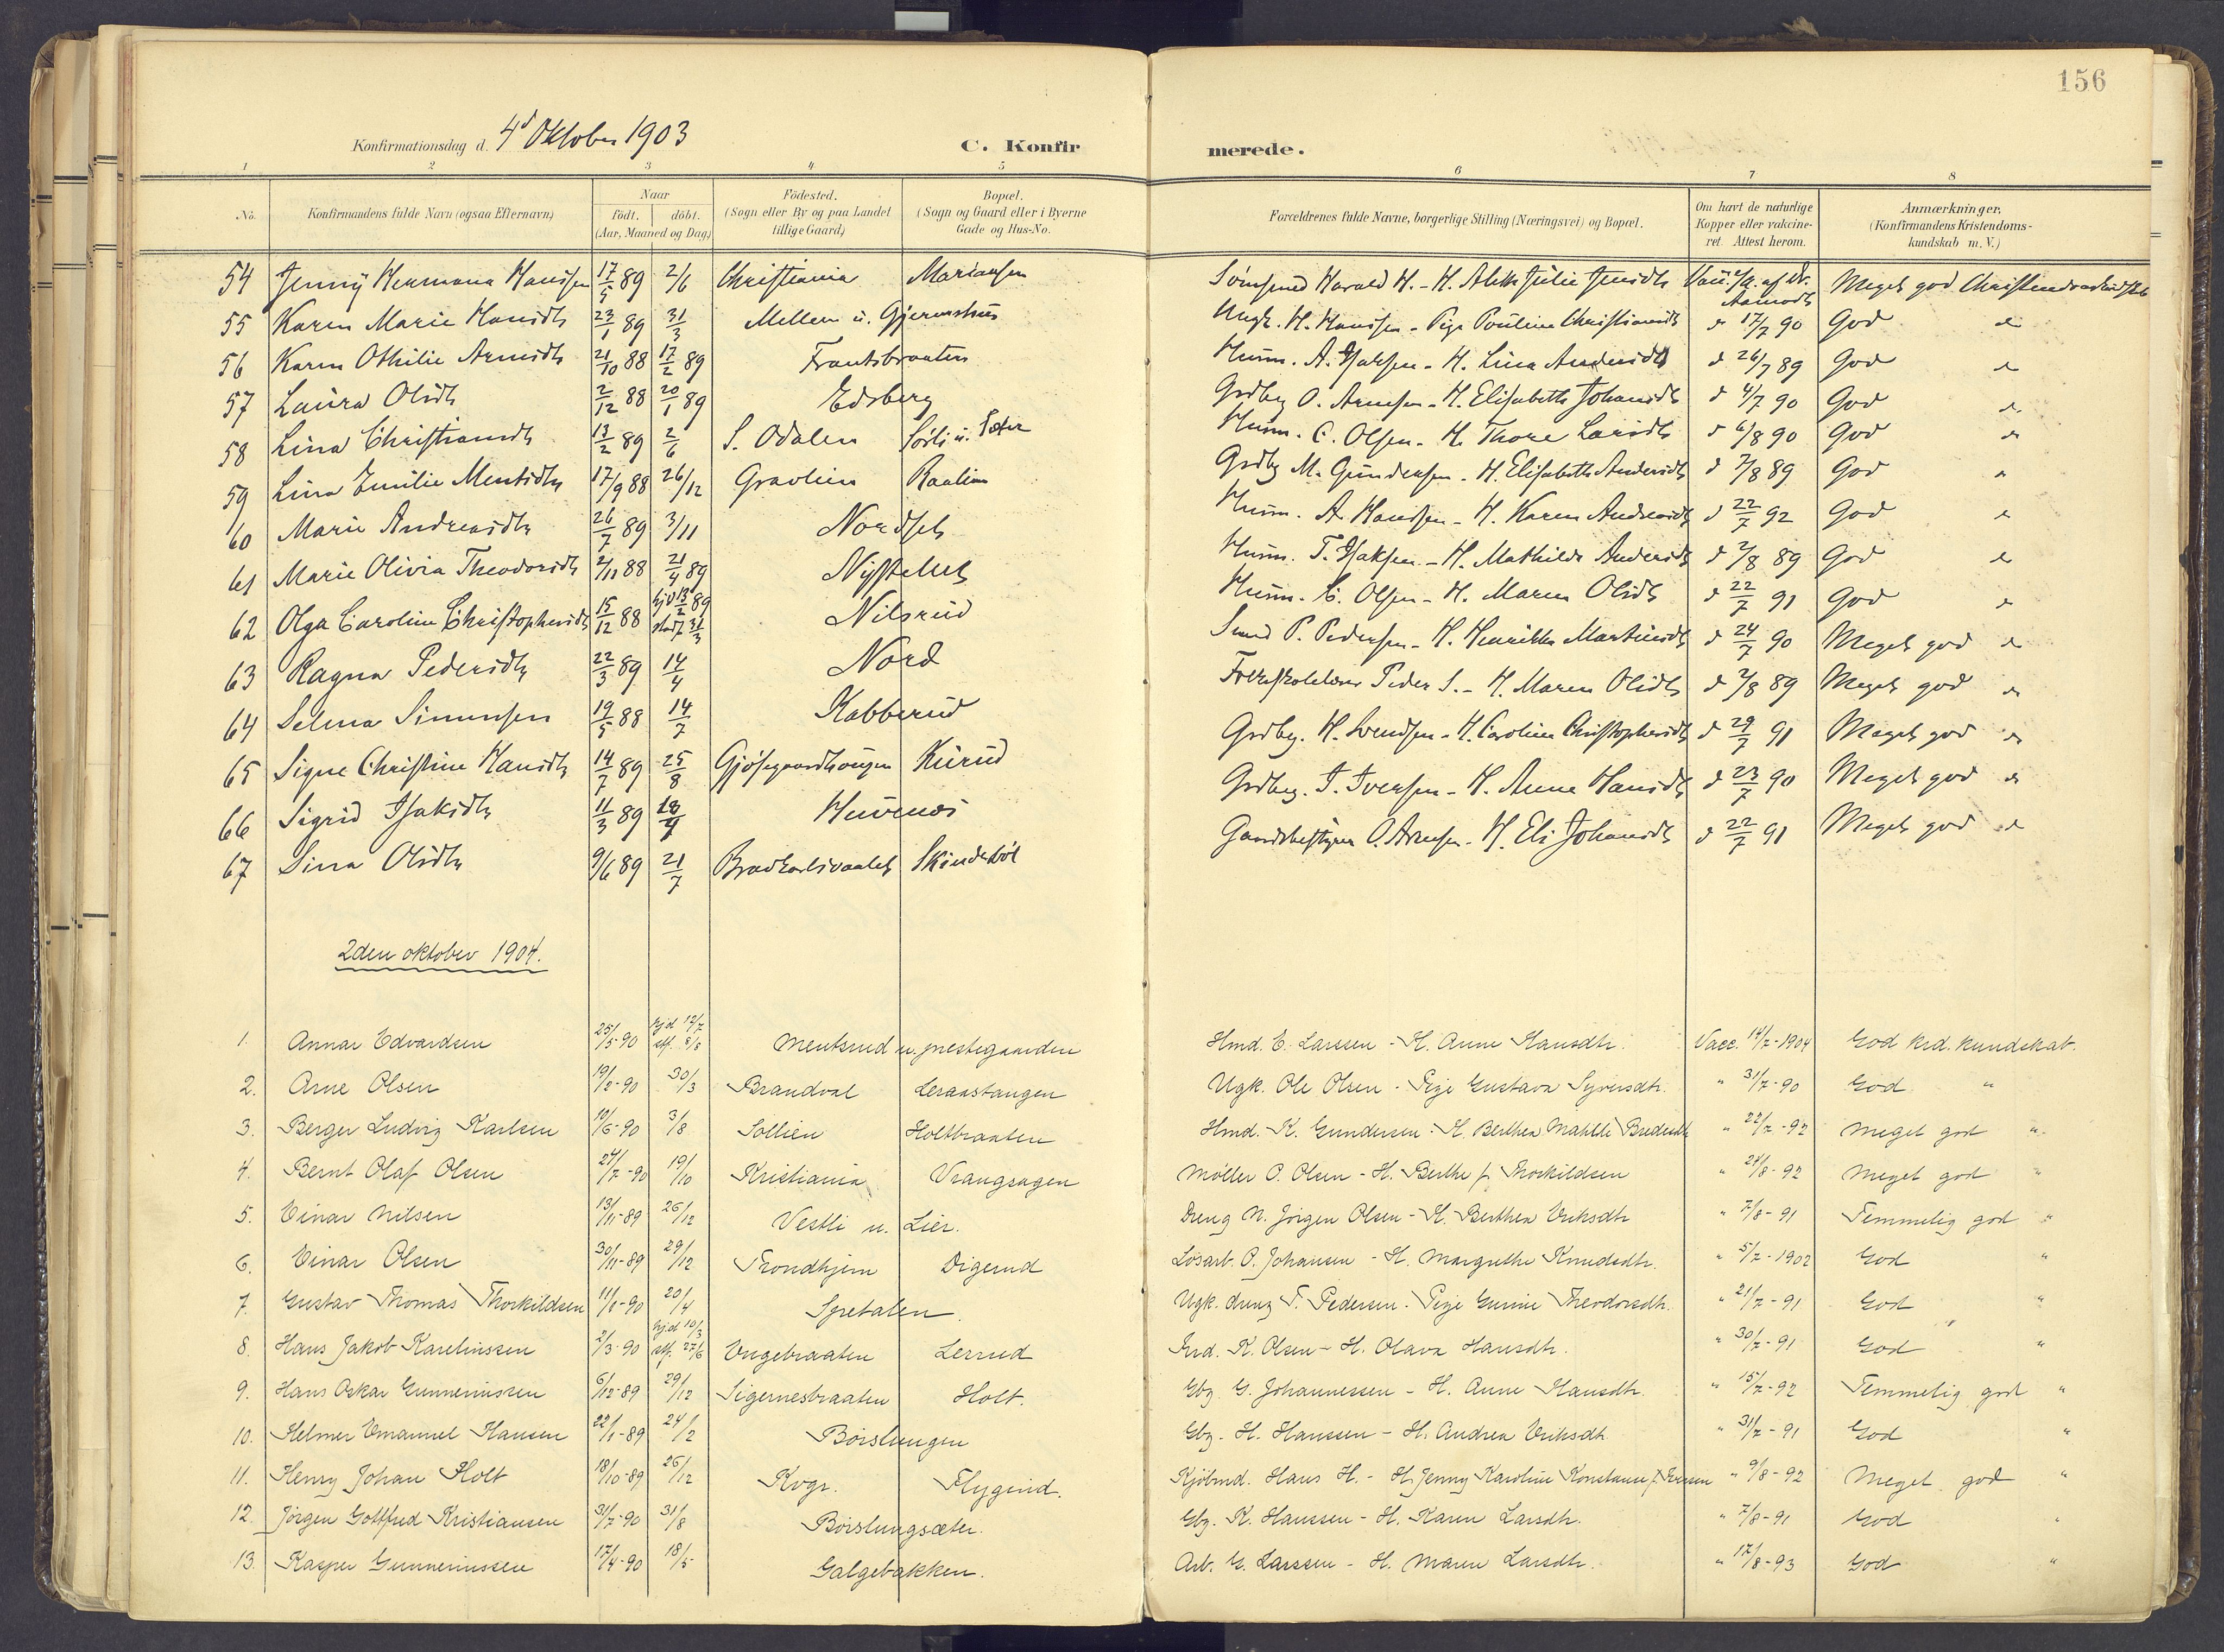 156
Konfirmationsdag d. 4d Oktober 1903 C. Konfir merede.
1 2 3 4 5 6 7 8
No. Konfirmandens fulde Navn (ogsaa Efternavn) Naar født. døbt. (Aar, Maaned og Dag) Födested. (Sogn eller By og paa Landet tillige Gaard) Bopæl. (Sogn og Gaard eller i Byerne Gade og Hus-No. Forældrenes fulde Navne, borgerlige Stilling (Næringsvei) og Bopæl. Om havt de naturlige Kopper eller vakcineret. Attest herom. Anmærkninger, (Konfirmandens Kristendomskundskab m. V.)
54 Jenny Hermana Hanssen 17/5 89 2/6 Christiania Harald H. - H. Meget god
55 Karen Marie Hansdtr 23/1 89 31/3 Mellem u. Gjermshus Ungk. H. Hanssen - Pige Pouline Christiansdtr d 17/7 90 God d
56 Karen Othilie Arnesdtr 21/10 88 17/2 89 Frantsbraaten Husm. A. - H. Lina Andersdtr d 26/7 89 God d
57 Laura Olsdtr 2/12 88 20/1 89 Edsberg Grdbg O. Arnesen - H. Elisabeth Johansdtr d 4/7 90 God d
58 Lina Christiansdtr 13/2 89 2/6 S. Odalen Sörli u. Sæter Husm. C. Olsen - H. Thore Larsdtr d 6/8 90 God d
59 Lina Emilie Mentsdtr 17/9 88 26/12 Gravlien Raalien Grdbg M. Gundersen - H. Elisabeth Andersdtr d 7/8 89 God
60 Marie Andreasdtr 26/7 89 3/11 Nordset Husm. A. Hansen - H. Karen Andreasdtr d 22/7 92 God d
61 Marie Olivia Theodorsdtr 2/11 88 21/4 89 Husm. T. Isaksen - H. Mathilde Andersdtr d 7/8 89 God d
62 Olga Caroline Christophersdtr 15/12 88 hjd 13/2 89 stadf 31/3 Nilsrud Husm. C. Olsen - H. Maren Olsdtr d 22/7 91 God d
63 Ragna Pedersdtr 22/3 89 14/4 Nord Smed P. Pedersen - H. Henrikke Martinsdtr d 24/7 90 Meget god d
64 Selma Simensen 19/5 88 14/7 Kabberud Peder S. - H. Maren Olsdtr d 7/8 89 Meget god d
65 Signe Christine Hansdtr 14/7 89 25/8 Kurud Grdbg. H. Svendsen - H. Caroline Christophersdtr d 29/7 91 Meget god d
66 Sigrid Isaksdtr 11/3 89 Huvenes Grdbg. I. Iversen - H. Anne Hansdtr d 23/7 90 Meget god d
67 Sina Olsdtr 9/6 89 21/7 Skinderböl Gaardsbestyrer O. Arnesen - H. Eli Johansdtr d 22/7 91 Meget god d
2den oktober 1904.
1. Annar Edvardsen 25/5-90 hjd 12/7 stf. 8/8 Mentsrud u. prestegaarden Hmd. E. Larssen - H. Anne Hansdtr. Vacc. 14/7-1904 God krd. kundskab.
2. Arne Olsen 19/2-90 30/3 Brandval Leraastangen Ugk. Ole Olsen - Pige Gustava Syversdtr. " 31/7-90 God "
3. Berger Ludvig Karlsen 10/6-90 3/8 Sollien Holtbraaten Hmd. K. Gundersen - H. Berthea " 22/7-92 Meget god "
4. Bernt Olaf Olsen 24/7-90 19/10 Kristiania Vrangsagen Möller O. Olsen - H. Berthe f. Thorkildsen " 24/8-92 Meget god "
5. Einar Nilsen 13/11-89 26/12 Vestli u. Lier. Dreng N. Jörgen Olsen - H. Berthea Eriksdtr " 7/8-91 Temmelig god "
6. Einar Olsen 30/11-89 29/12 Trondhjem Digerud Losarb. O. Johansen - H. Margrethe Knudsdtr. " 5/7-1902 God "
7. Gustav Thomas Thorkildsen 11/1-90 20/4 Spretalen. Ugk. dreng T. Pedersen. Pige Gurine Theodorsdtr. " 21/7-91 God "
8. Hans Jakob Karelinssen 2/3-90 hjd 10/3 stf. 27/6 Engebraaten Lerrud Ind. K. Olsen - H. Olava Hansdtr. " 30/7-91 God "
9. Hans Oskar Gunneriussen 6/12-89 29/12 Sigernesbraaten Holt. Gbg. G. Johannessen - H. Anne Hansdtr. " 15/7-92 Temmelig god "
10. Helmer Emanuel Hansen 22/1-89 24/2 Börslungen Gbg. H. Hanssen - H. Andrea Eriksdtr. " 31/7-91 God "
11. Henry Johan Holt 18/10-89 26/12 Kvgr. Flygind. Kjöbmd. Hans H. - H. Jenny Karoline Konstanse f. Iversen " 9/8-92 Meget god "
12. Jörgen Gottfred Kristiansen 31/7-90 31/8 Börslungsæter. Gbg. K. Hanssen - H. Karen Larsdtr. " 7/8-91 God "
13. Kasper Gunneriussen 17/4-90 18/5 Galgebakken. Arb. G. Larssen - H. Maren Larsdtr. " 17/8-93 God "